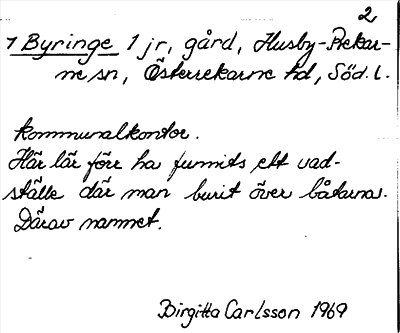 2
1 Byringe 1 jr, gård, Husby-Rekar-
ne sn, Österrekarne hd, Söd. l.
Kommunalkontor.
Här lär förr ha funnits ett vad-
ställe där man burit över båtarna.
Därav namnet.
Birgitta Carlsson 1969